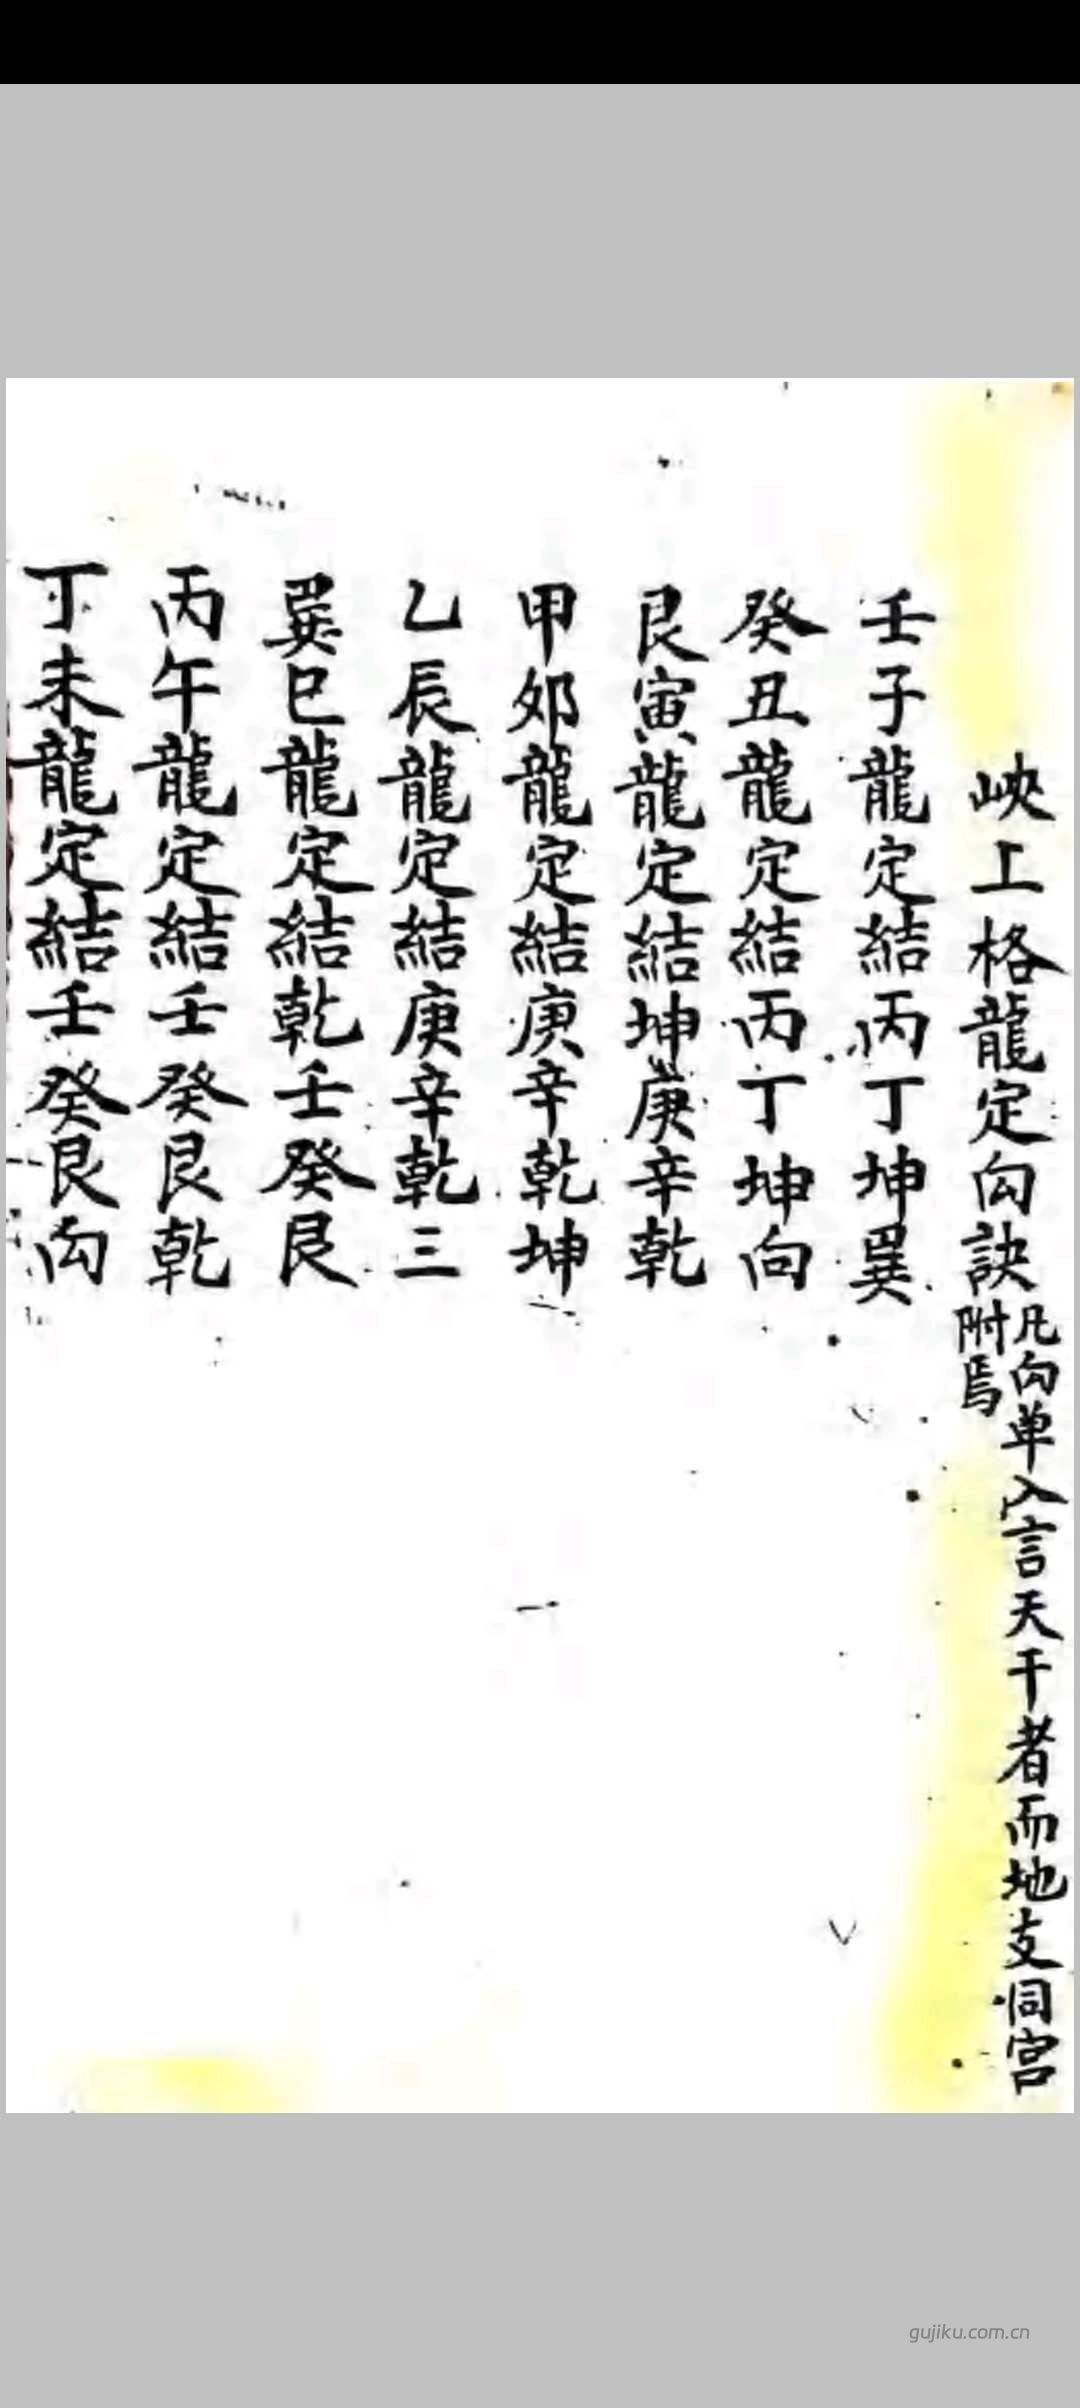 峡上格龍定向訣
凡向单入言天干者而地支同宫
附焉
壬子龍定結丙丁坤巽
癸丑龍定結丙丁坤向
艮寅龍定結坤庚辛乾
甲夘龍定結庚辛乾坤
乙辰龍定結庚辛乾三
巽巳龍定結乾壬癸艮
丙午龍定結壬癸艮乾
丁未龍定結壬癸艮向
gujiku.com.cn